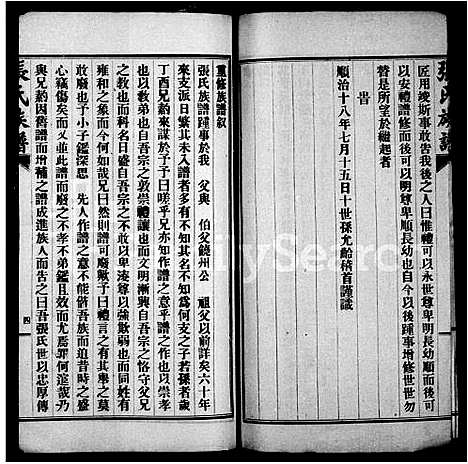 匠用竣斯事敢告我後之人曰惟禮可以永世尊卑明長幼順而後可
以安禮譜修而後可以明尊卑順長幼也自今以後踵事增修世世勿
替是所望於繼起者
旹
順治十八年七月十五日十世孫允齡稽首謹識
張氏族譜
重修族譜叙
張氏族譜踵事於我 父與 伯父饒州公 祖父以前詳矣六十年
來支派日繁其未入譜者多有不知其名不知為何支之子若孫者歲
丁酉兄蔚來謀於予予曰嗟乎兄亦知作譜之意乎譜作之意禮之意
也以吾宗之敦崇禮讓也而文明漸興自吾宗之恪守父兄
之教也而科名日盛自吾宗之尊以強欺弱也而同姓有
雍和之象而今何如哉兄曰然則譜可廢歟予曰禮行其有舉之莫
敢廢也予小子鑑深思 先人作譜之意不能偕吾族而追昔時之盛
心竊傷矣而又並此譜而廢之不孝不弟鑑且效而尤焉罪何逭哉乃
與兄蔚因舊譜而增補之譜成進族人而告之曰吾張氏世以忠厚傳
張氏族譜
四